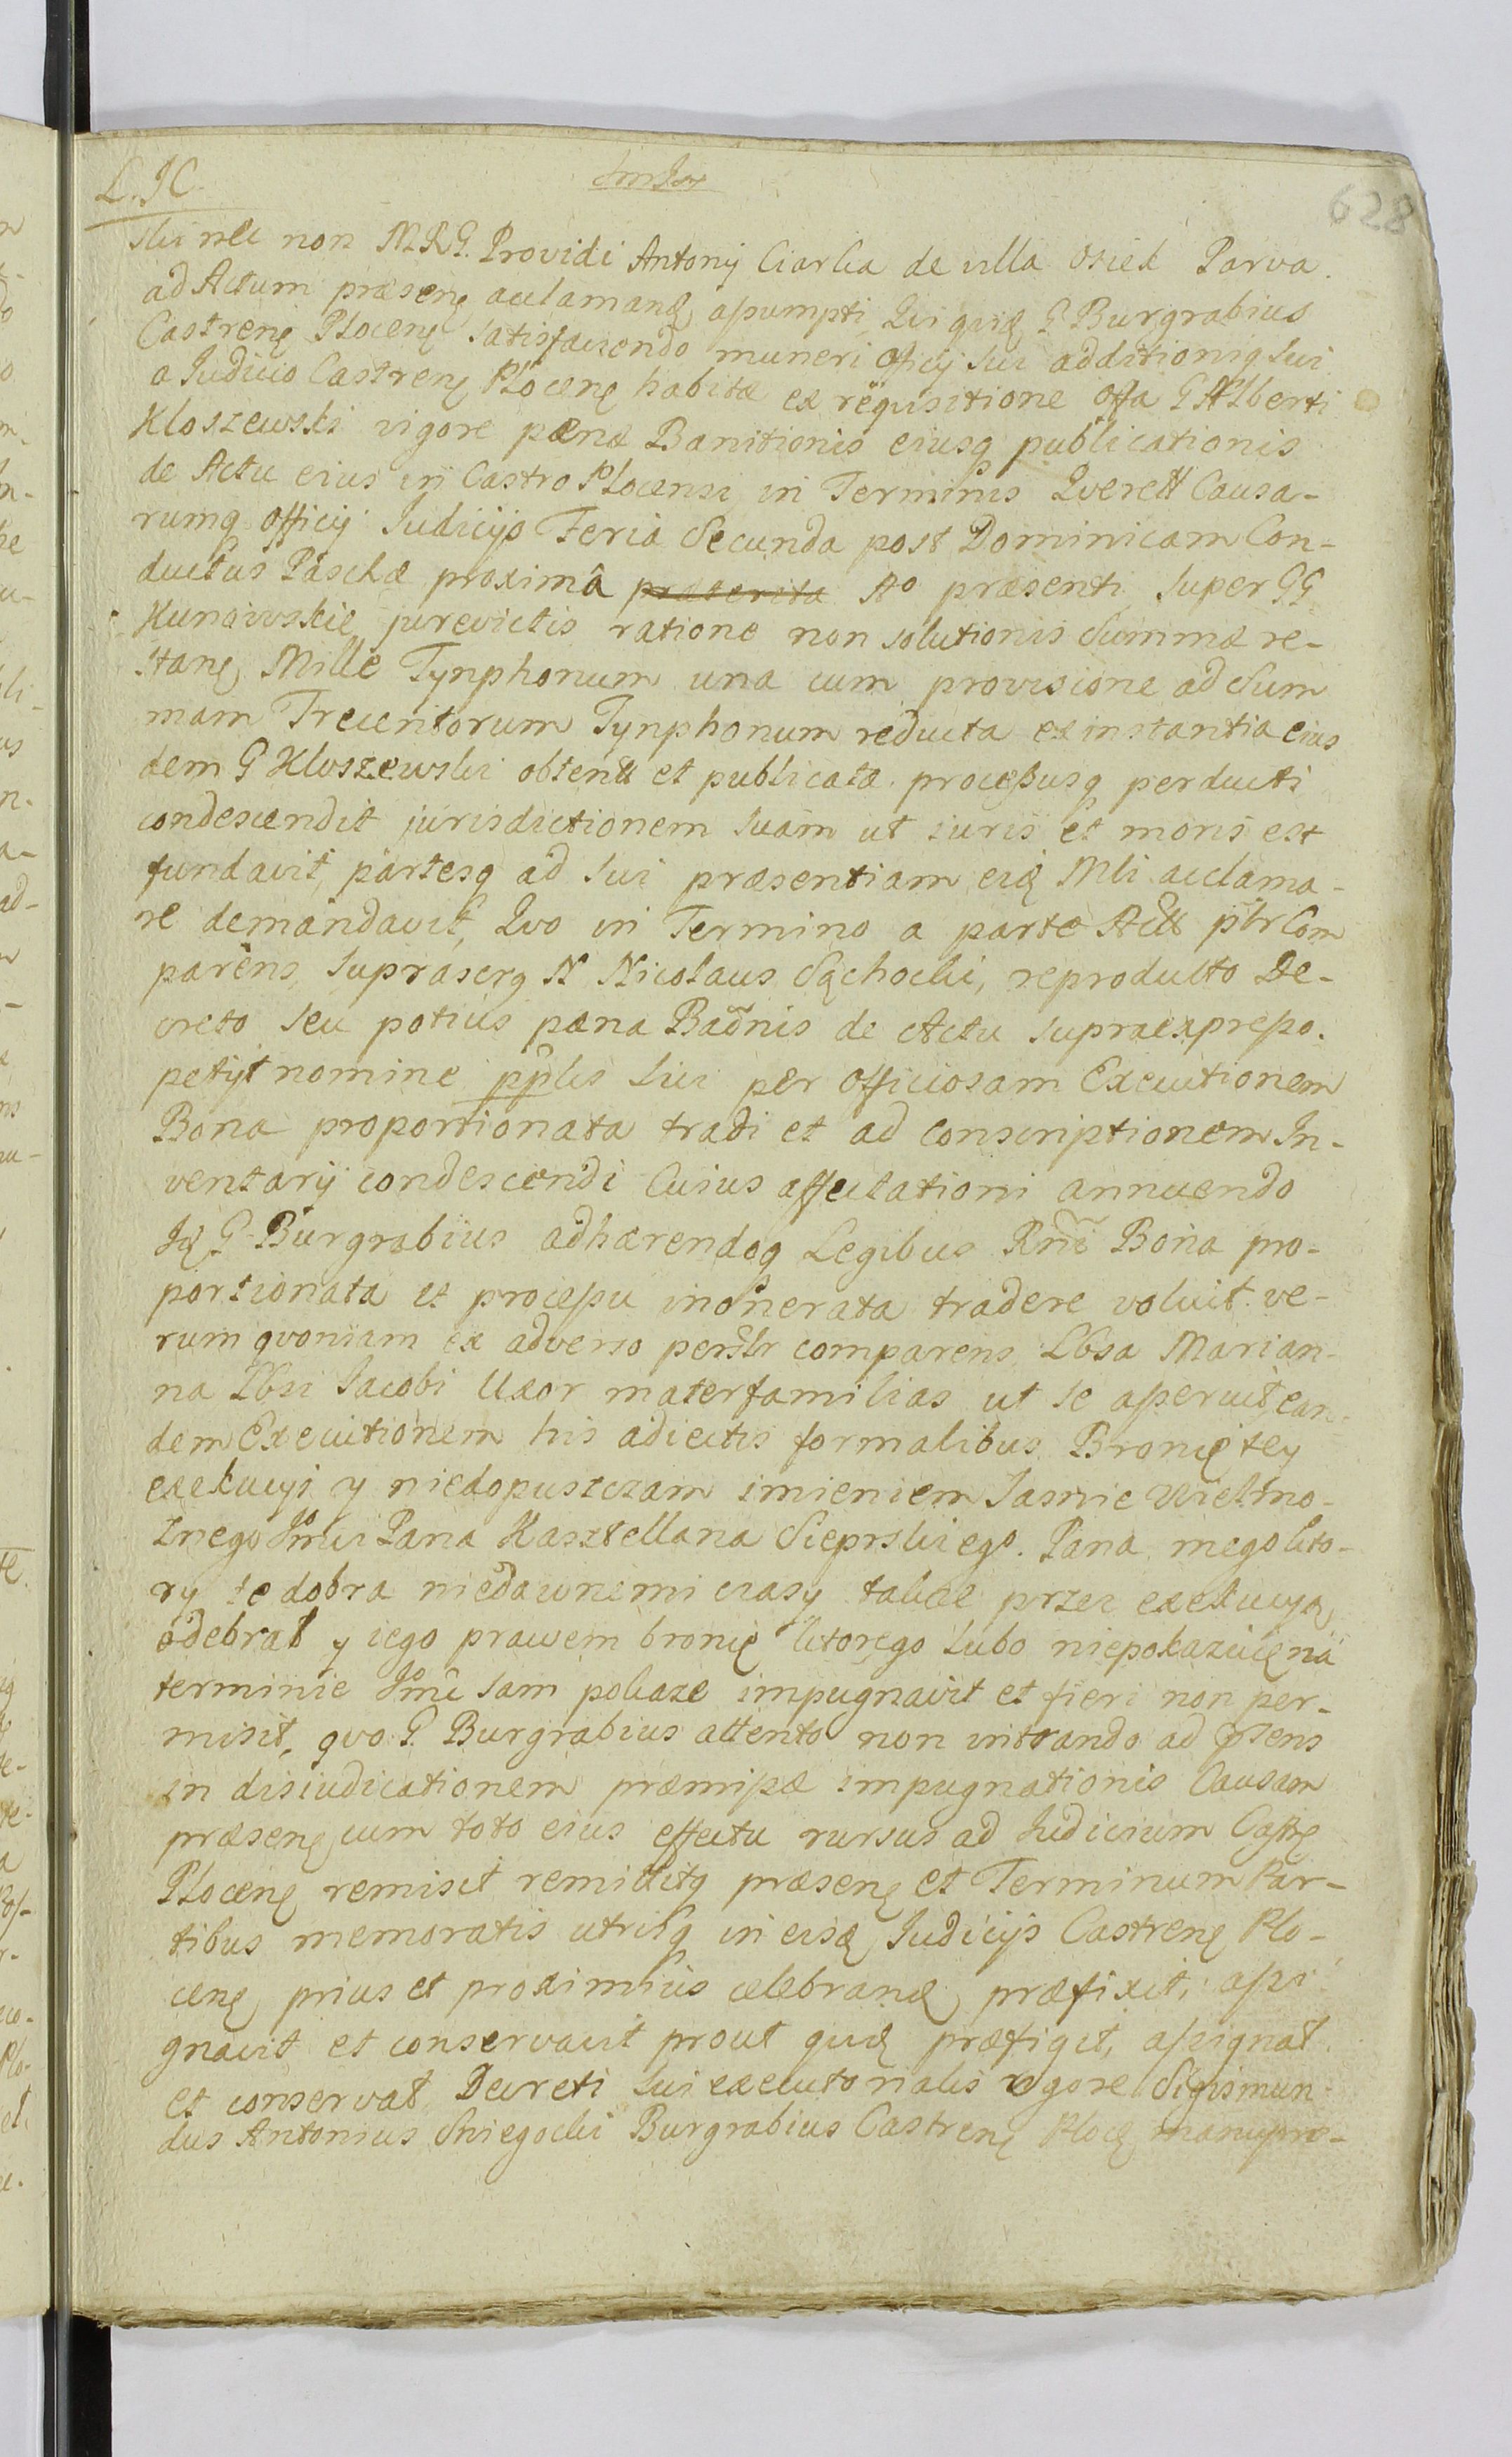 L. IC.
628
ski nec non M.R.G. Providi Antonij Ciarka de villa Osiek Parva
ad Actum præsenę acclamanđ assumpti Qui quiđ G Burgrabius
Castrenę Plocenę satisfaciendo muneri officij sui additioniq sui
a Iudicio Castrenę Plocenę habitæ ex requisitione Offa G Alberti
Kloszewski vigore pænæ Banitionis eiusq publicationis
de Actu eius in Castro Plocensi in Terminis Querell Causa-
rumq officij Iudicijs Feria Secunda post Dominicam Con-
ductus Paschæ proximâ præterita Aº præsenti super GG
Kunaiwskie jurevictis ratione non solutionis Summæ re-
stanę Mille Tynphonum una cum provisione ad Sum
mam Trecentorum Tynphonum reducta ex instantia eius
dem G Kloszewski obtenti et publicatæ processusq perducti
condescendit jurisdictionem suam ut iuris et moris est
fundavit, partesq ad sui præsentiam eiđ Mli acclama-
re demandavit, Quo in Termino a parte Actt psłr Com
parens, supraserq N Nicolaus Sąchocki, reproducto De-
creto seu potius pæna Badñis de Actu supraexpresso.
petijt nomine pplis sui per officiosam Executionem
Bona proportionata tradi et ad conscriptionem In-
ventarij condescendi Cuius affectationi annuendo
Iđ G Burgrabius adhærendoq Legibus Rñi Bona pro-
portionata et processu inonerata tradere voluit. ve-
rum qvoniam ex adverso persłr comparens Lbsa Marian-
na Lbsi Iacobi Uxor materfamilias ut se aperuit, ean-
dem Executionem his adiectis formalibus Bronię tey
exekucyi y niedopuszczam imieniem Iasnie Wielmo-
znego Jmci Pana Kasztellana Sieprskiego. Pana mego kto-
ry te dobra niedawnemi czasy takze przez exekucyą
odebrał y iego prawem bronię ktorego lubo niepokazuię na
terminie Jmc sam pokaze impugnavit et fieri non per-
misit, qvo G Burgrabius attento non intrando ad prsens
in disiudicationem præmissæ impugnationis Causam
præsenę cum toto eius effectu rursus ad Iudicium Castrę
Plocenę remisit remittitq præsenę et Terminum Par-
tibus memoratis utrisq in eisđ Iudicijs Castrenę Plo-
cenę prius et proximius celebranđ præfixit, assi
gnavit et conservavit prout quiđ præfigit, assignat
et conservat Decreti sui executorialis vigore Sigismun-
dus Antonius Sniegocki Burgrabius Castrenę Plocę manupro-